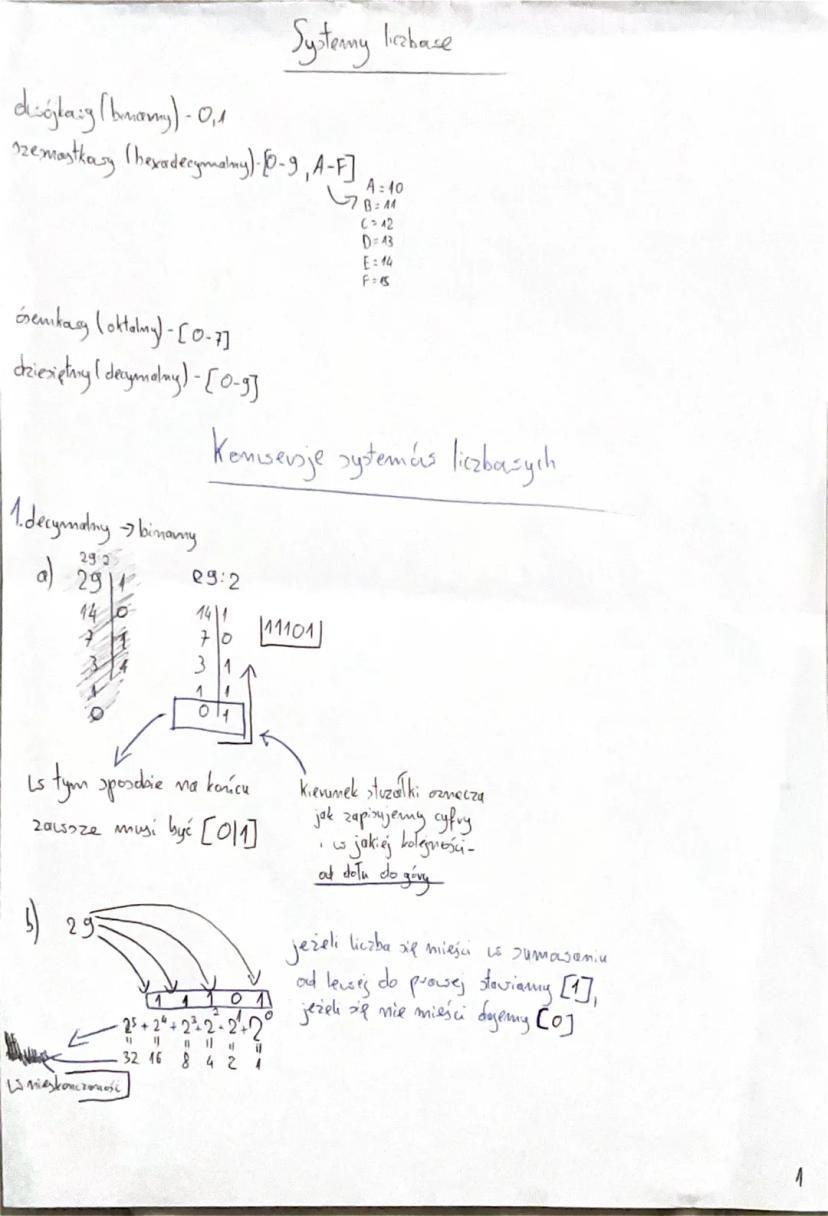 Systemy liczbowe
dwójkowy (binarny) - 0,1
szesnastkowy (hexadecymalny) - [0-9, A-F]
A=10
B=11
C=12
D=13
E=14
F=15
ósemkowy (oktalny) - [0-7]
dziesiętny (decymalny) - [0-9]
Konwersje systemów liczbowych
1. decymalny → binarny
a)
29:2
29|1
14|0
7|1
3|1
1
0
29:2
14|1
7|0
3|1
1|1
0|1
|11101|
w tym sposobie na końcu
zawsze musi być [0|1]
kierunek strzałki oznacza
jak zapisujemy cyfry
i w jakiej kolejności -
od dołu do góry
b) 29
1 1 1 0 1
2⁵ + 2⁴ + 2³ + 2² + 2¹ + 2⁰
32 16 8 4 2 1
w nieskończoność
jeżeli liczba się mieści w sumowaniu
od lewej do prawej stawiamy [1],
jeżeli się nie mieści dajemy [0]
1